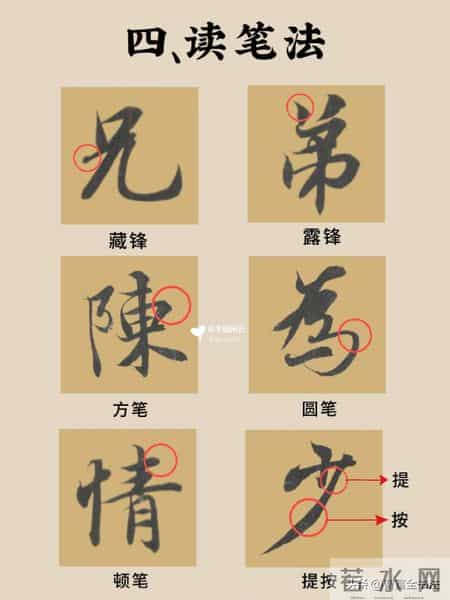 四、读笔法
兄 弟
藏锋 露锋
陳 為
方笔 圆笔
情 少
提
按
顿笔 提按
若水网